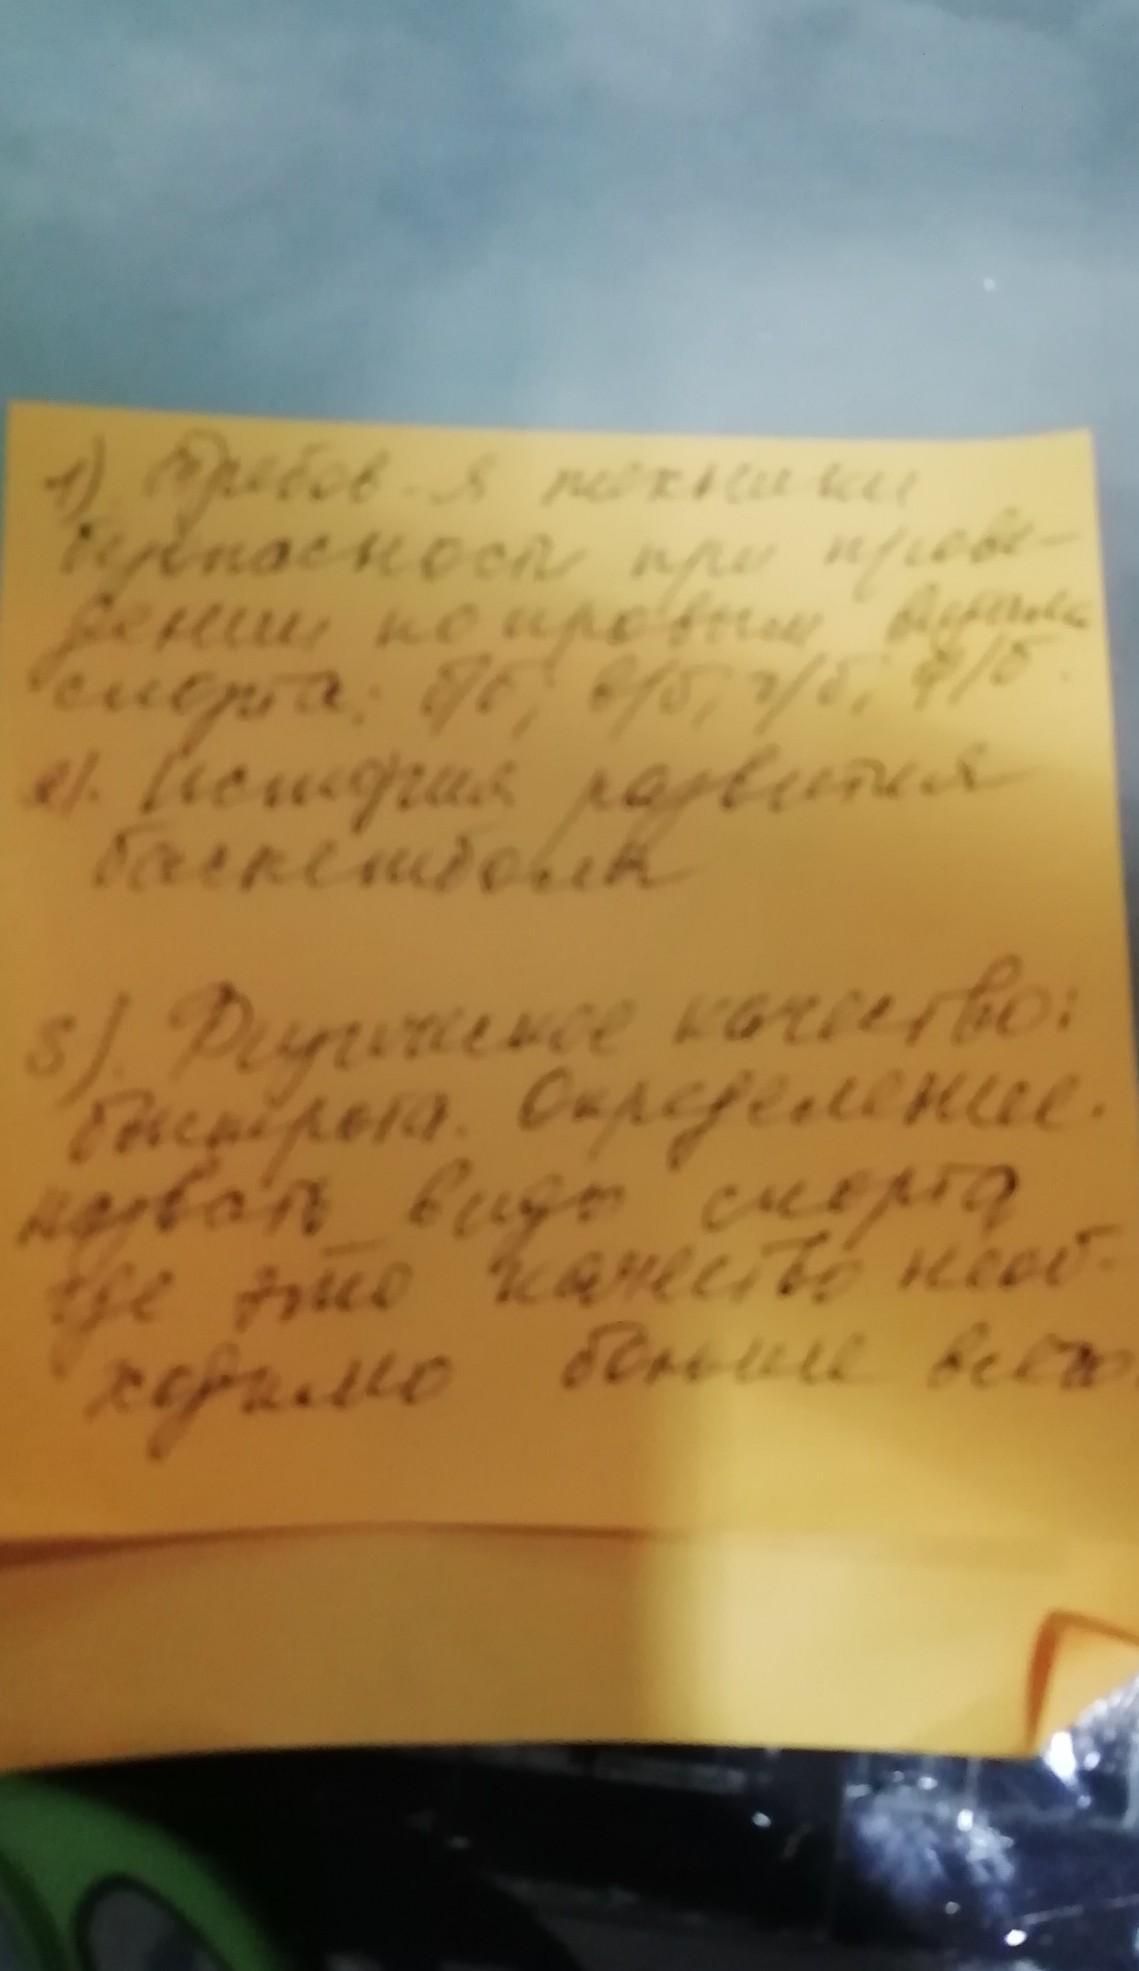 1) Требов-я техники
безопасности при прове-
дении по игровым видам
спорта: б/б, в/б, г/б, ф/б.
2). История развития
баскетбола
3). Физическое качество:
быстрота. Определение.
назвать виды спорта
где это качество необ-
ходимо больше всего.